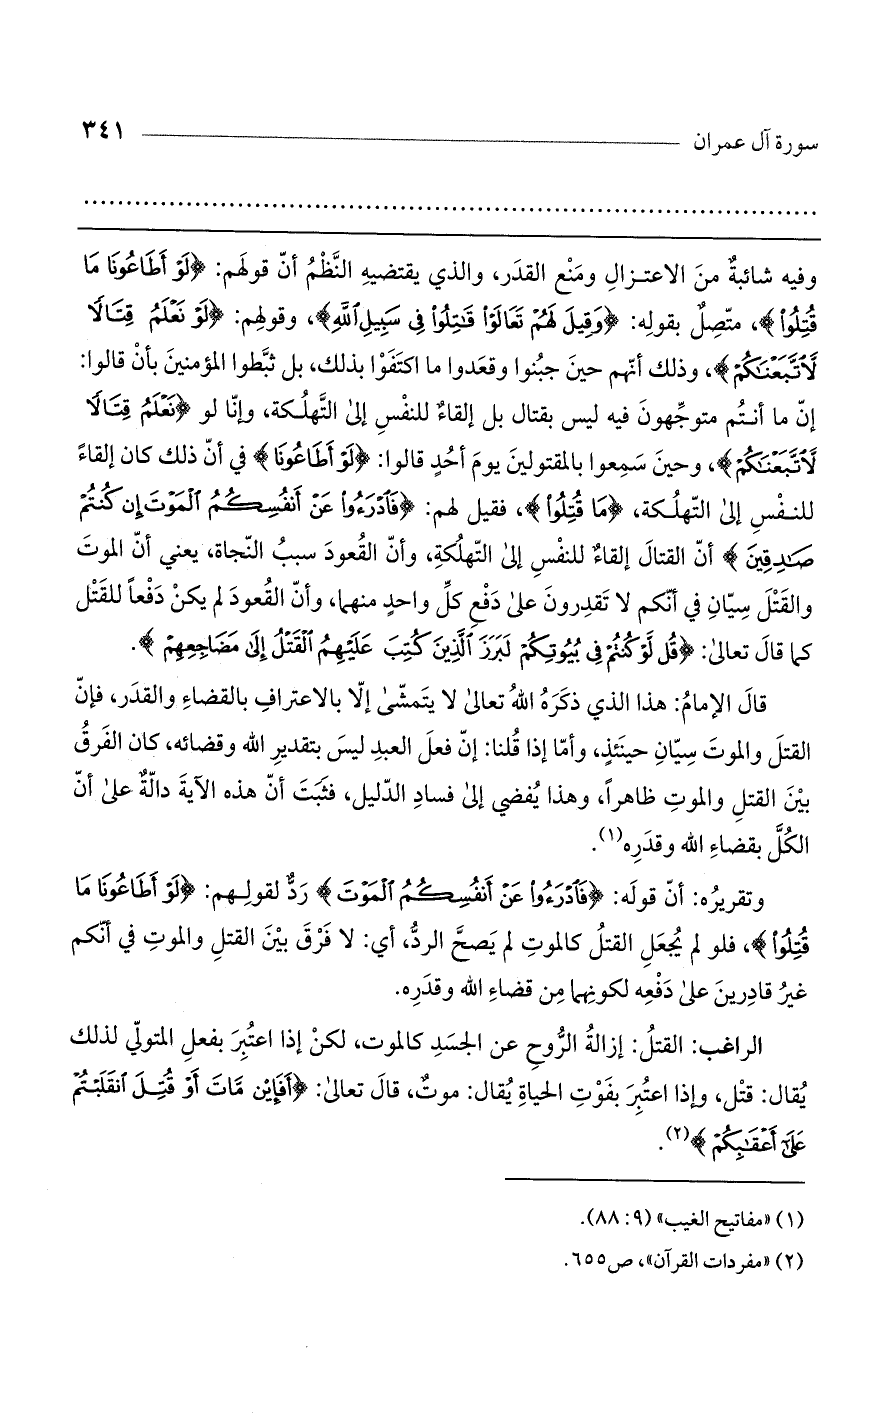 سورة آل عمران ٣٤١
وفيه شائبةٌ منَ الاعتـزالِ ومَنْع القدَر، والذي يقتضيهِ النَّظْمُ أنّ قولَهم: ﴿لَوْ أَطَاعُونَا مَا
قُتِلُوا۟﴾، متّصِلٌ بقولِه: ﴿وَقِيلَ لَهُمْ تَعَالَوْا۟ قَٰتِلُوا۟ فِى سَبِيلِ ٱللَّهِ﴾، وقولهِم: ﴿لَوْ نَعْلَمُ قِتَالًا
لَّٱتَّبَعْنَٰكُمْ﴾، وذلك أنّهم حينَ جبُنوا وقعَدوا ما اكتَفَوْا بذلك، بل ثبَّطوا المؤمنينَ بأنْ قالوا:
إنّ ما أنـتُم متوجِّهونَ فيه ليس بقتال بل إلقاءٌ للنفْسِ إلىٰ التَّهلُـكة، وإنّا لو ﴿نَعْلَمُ قِتَالًا
لَّٱتَّبَعْنَٰكُمْ﴾، وحينَ سَمِعوا بالمقتولينَ يومَ أحُدٍ قالوا: ﴿لَوْ أَطَاعُونَا﴾ في أنّ ذلك كان إلقاءً
للنـفْسِ إلىٰ التّهلُـكة، ﴿مَا قُتِلُوا۟﴾، فقيل لهم: ﴿فَٱدْرَءُوا۟ عَنْ أَنفُسِكُمُ ٱلْمَوْتَ إِن كُنتُمْ
صَٰدِقِينَ﴾ أنّ القتالَ إلقاءٌ للنفْسِ إلىٰ التّهلُكةِ، وأنّ القُعودَ سببُ النّجاة، يعني أنّ الموتَ
والقَتْلَ سِيّانِ في أنّكم لا تَقدِرونَ علىٰ دَفْعِ كلِّ واحدٍ منهما، وأنّ القُعودَ لم يكنْ دَفْعاً للقَتْل
كما قالَ تعالىٰ: ﴿قُل لَّوْ كُنتُمْ فِى بُيُوتِكُمْ لَبَرَزَ ٱلَّذِينَ كُتِبَ عَلَيْهِمُ ٱلْقَتْلُ إِلَىٰ مَضَاجِعِهِمْ﴾.
قالَ الإمامُ: هذا الذي ذكَرَهُ اللهُ تعالىٰ لا يتَمشّىٰ إلّا بالاعترافِ بالقضاءِ والقدَر، فإنّ
القتلَ والموتَ سِيّانِ حينَئذٍ، وأمّا إذا قُلنا: إنّ فعلَ العبدِ ليسَ بتقديرِ الله وقضائه، كان الفَرقُ
بيْنَ القتلِ والموتِ ظاهراً، وهذا يُفضي إلىٰ فسادِ الدّليل، فثبَتَ أنّ هذه الآيةَ دالّةٌ علىٰ أنّ
الكُلَّ بقضاءِ الله وقدَرِه(١).
وتقريرُه: أنّ قولَه: ﴿فَٱدْرَءُوا۟ عَنْ أَنفُسِكُمُ ٱلْمَوْتَ﴾ رَدٌّ لقولـهم: ﴿لَوْ أَطَاعُونَا مَا
قُتِلُوا۟﴾، فلو لم يُجعَلِ القتلُ كالموتِ لم يَصحَّ الردُّ، أي: لا فَرْقَ بيْنَ القتلِ والموتِ في أنّكم
غيرُ قادِرينَ علىٰ دَفْعِه لكونِهما مِن قضاءِ الله وقدَرِه.
الراغب: القتلُ: إزالةُ الرُّوحِ عن الجسَدِ كالموت، لكنْ إذا اعتُبِرَ بفعلِ المتولّي لذلك
يُقال: قتْل، وإذا اعتُبِرَ بفَوْتِ الحياةِ يُقال: موتٌ، قالَ تعالىٰ: ﴿أَفَإِي۟ن مَّاتَ أَوْ قُتِلَ ٱنقَلَبْتُمْ
عَلَىٰٓ أَعْقَٰبِكُمْ﴾(٢).
(١) «مفاتيح الغيب» (٩: ٨٨).
(٢) «مفردات القرآن»، ص٦٥٥.